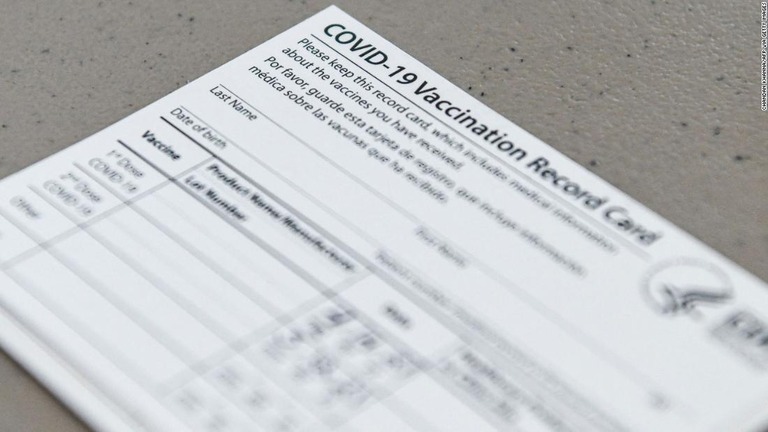 COVID-19 Vaccination Record Card
Please keep this record card, which includes medical information
about the vaccines you have received.
Por favor, guarde esta tarjeta de registro, que incluye información
médica sobre las vacunas que ha recibido.
Last Name
First Name
Date of birth
Vaccine
Product Name/Manufacturer
Lot Number
Date
1st Dose
COVID-19
2nd Dose
COVID-19
Other
CHANDAN KHANNA/AFP VIA GETTY IMAGES